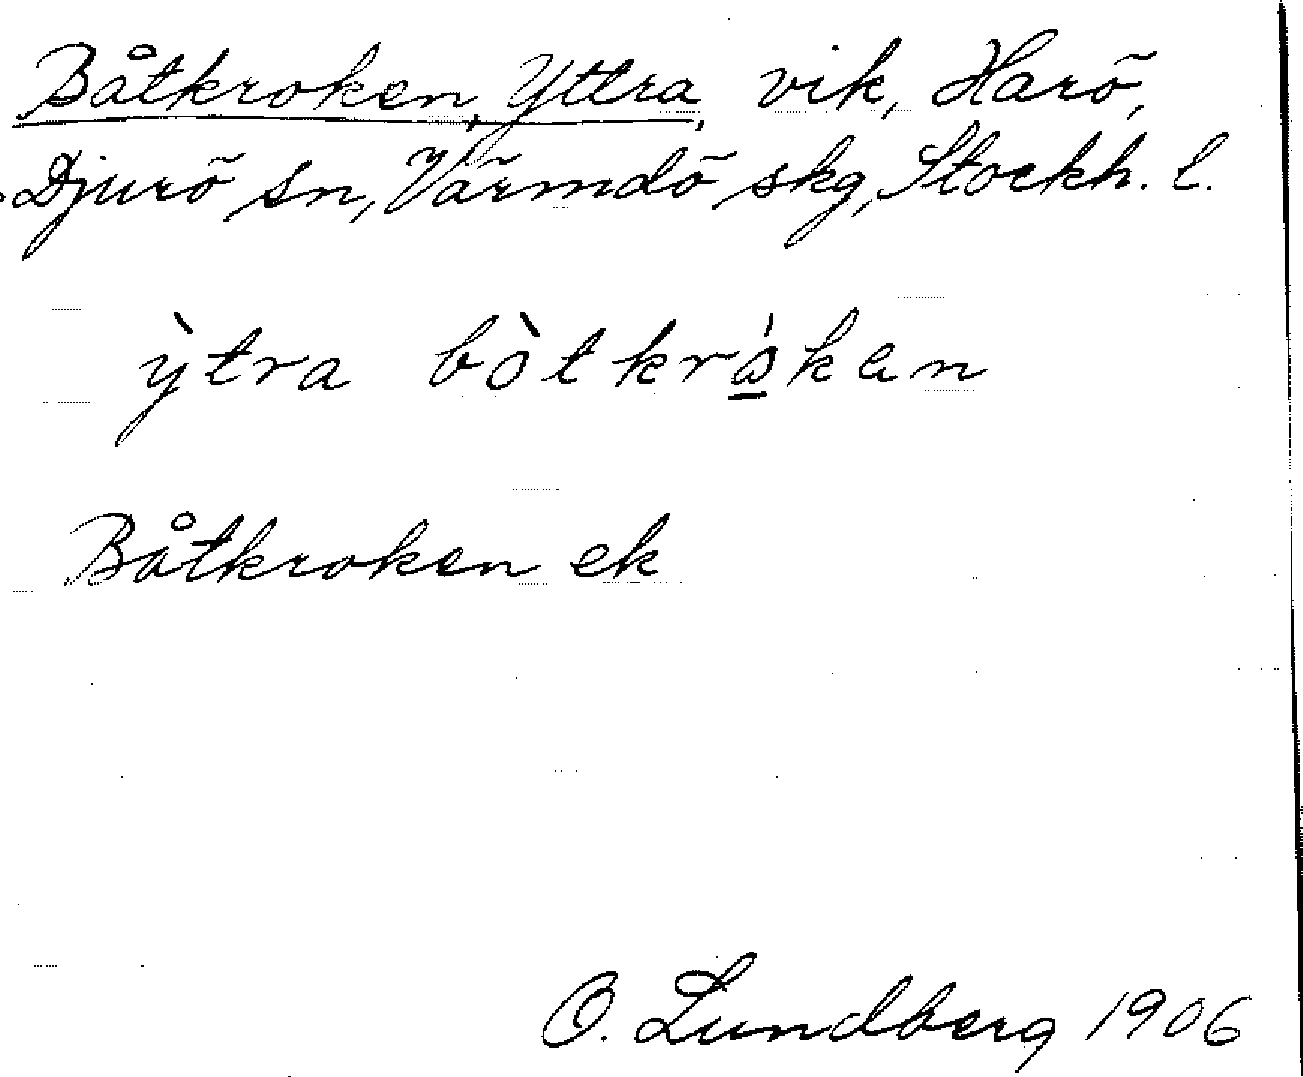 Båtkroken, Yttra, vik, Harö,
Djurö sn, Värmdö skg, Stockh. l.
ỳtra bòtkró̲kan
Båtkroken ek
O. Lundberg 1906